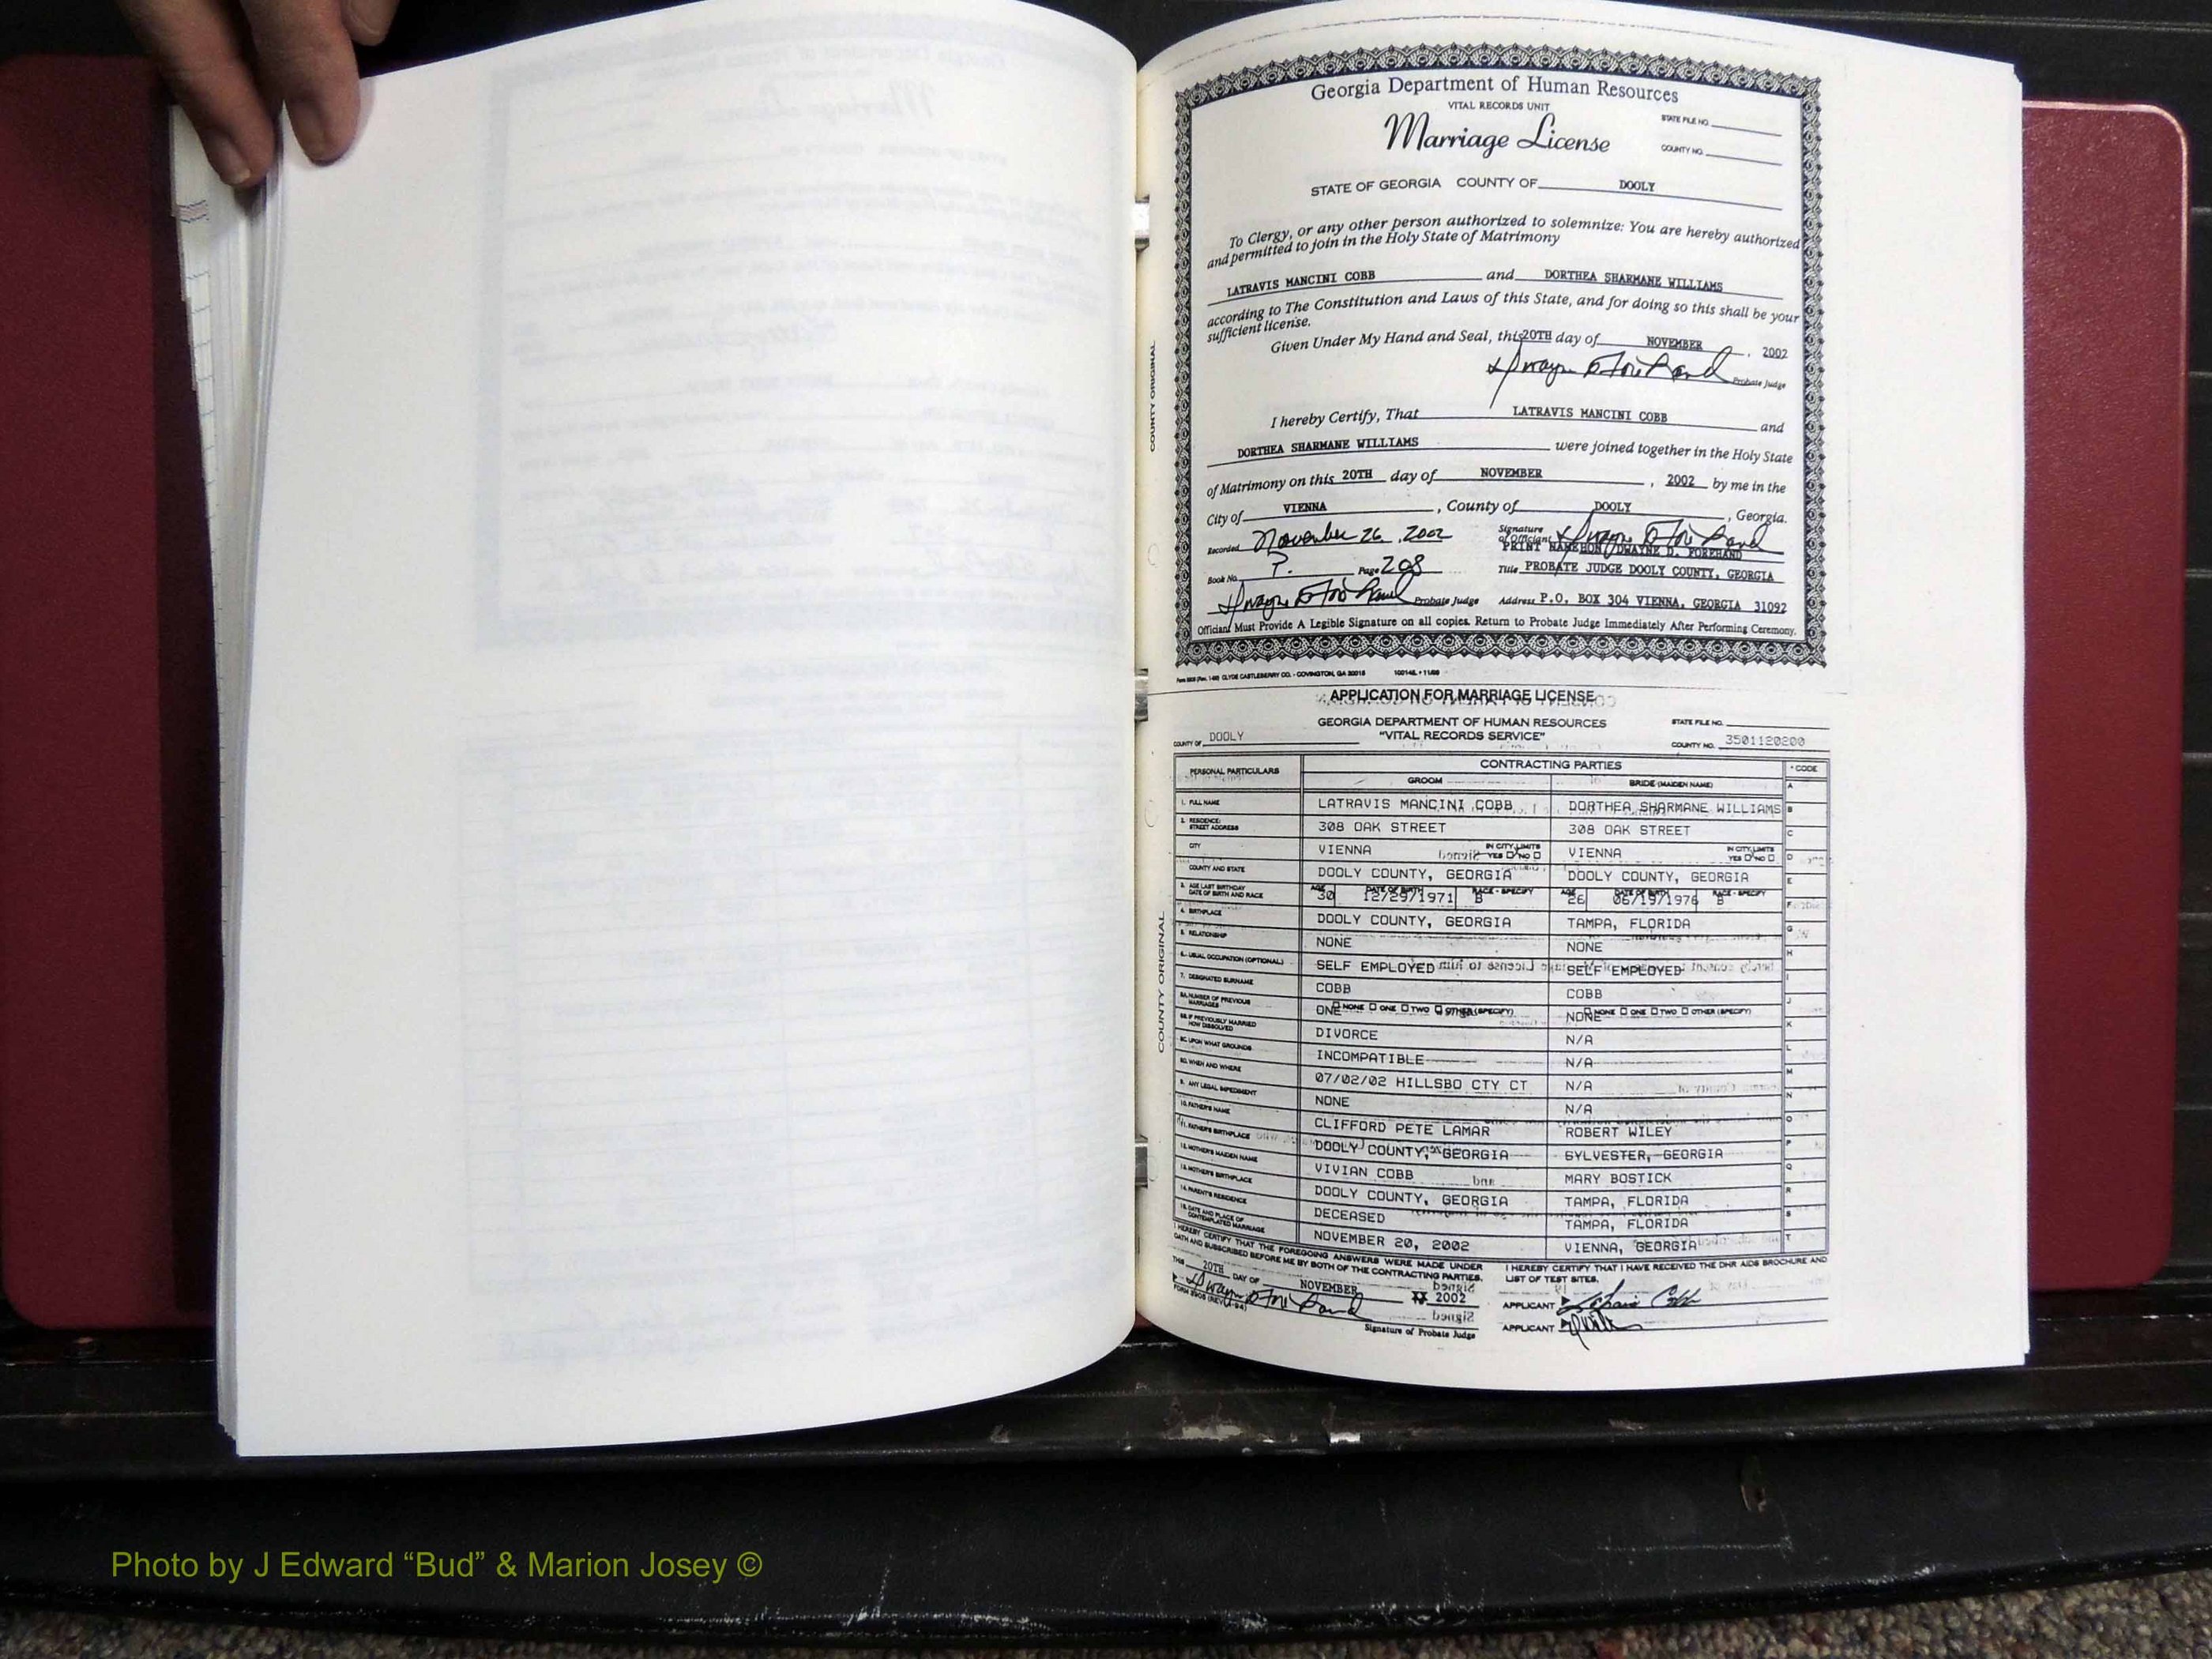 Georgia Department of Human Resources
VITAL RECORDS UNIT
Marriage License
STATE FILE NO.
COUNTY NO.
STATE OF GEORGIA COUNTY OF DOOLY
To Clergy, or any other person authorized to solemnize: You are hereby authorized
and permitted to join in the Holy State of Matrimony
LATRAVIS MANCINI COBB and DORTHEA SHARMANE WILLIAMS
according to The Constitution and Laws of this State, and for doing so this shall be your
sufficient license.
Given Under My Hand and Seal, this 20TH day of NOVEMBER, 2002
Probate Judge
I hereby Certify, That LATRAVIS MANCINI COBB and
DORTHEA SHARMANE WILLIAMS were joined together in the Holy State
of Matrimony on this 20TH day of NOVEMBER, 2002 by me in the
City of VIENNA, County of DOOLY, Georgia.
Recorded November 26, 2002 Signature of Officiant
PRINT NAME HON. DWAYNE D. FOREHAND
Book No. P. Page 208 Title PROBATE JUDGE DOOLY COUNTY, GEORGIA
Probate Judge Address P.O. BOX 304 VIENNA, GEORGIA 31092
Officiant Must Provide A Legible Signature on all copies. Return to Probate Judge Immediately After Performing Ceremony.
COUNTY ORIGINAL
CLYDE CASTLEBERRY CO. - COVINGTON, GA
APPLICATION FOR MARRIAGE LICENSE
GEORGIA DEPARTMENT OF HUMAN RESOURCES STATE FILE NO.
COUNTY OF DOOLY "VITAL RECORDS SERVICE" COUNTY NO. 3501120200
PERSONAL PARTICULARS CONTRACTING PARTIES * CODE
GROOM BRIDE (MAIDEN NAME) A
1. FULL NAME LATRAVIS MANCINI COBB DORTHEA SHARMANE WILLIAMS B
2. RESIDENCE: STREET ADDRESS 308 OAK STREET 308 OAK STREET C
CITY VIENNA IN CITY LIMITS YES NO VIENNA IN CITY LIMITS YES NO D
COUNTY AND STATE DOOLY COUNTY, GEORGIA DOOLY COUNTY, GEORGIA E
3. AGE LAST BIRTHDAY DATE OF BIRTH AND RACE AGE 30 DATE OF BIRTH 12/29/1971 RACE - SPECIFY B AGE 26 DATE OF BIRTH 06/19/1976 RACE - SPECIFY B F
4. BIRTHPLACE DOOLY COUNTY, GEORGIA TAMPA, FLORIDA G
5. RELATIONSHIP NONE NONE H
6. USUAL OCCUPATION (OPTIONAL) SELF EMPLOYED SELF EMPLOYED I
7. DESIGNATED SURNAME COBB COBB J
8A. NUMBER OF PREVIOUS MARRIAGES ONE NONE ONE TWO OTHER (SPECIFY) NONE NONE ONE TWO OTHER (SPECIFY) K
8B. IF PREVIOUSLY MARRIED HOW DISSOLVED DIVORCE N/A L
8C. UPON WHAT GROUNDS INCOMPATIBLE N/A M
8D. WHEN AND WHERE 07/02/02 HILLSBO CTY CT N/A N
9. ANY LEGAL IMPEDIMENT NONE N/A O
10. FATHER'S NAME CLIFFORD PETE LAMAR ROBERT WILEY P
11. FATHER'S BIRTHPLACE DOOLY COUNTY, GEORGIA SYLVESTER, GEORGIA Q
12. MOTHER'S MAIDEN NAME VIVIAN COBB MARY BOSTICK R
13. MOTHER'S BIRTHPLACE DOOLY COUNTY, GEORGIA TAMPA, FLORIDA S
14. PARENT'S RESIDENCE DECEASED TAMPA, FLORIDA T
15. DATE AND PLACE OF CONTEMPLATED MARRIAGE NOVEMBER 20, 2002 VIENNA, GEORGIA
I HEREBY CERTIFY THAT THE FOREGOING ANSWERS WERE MADE UNDER
OATH AND SUBSCRIBED BEFORE ME BY BOTH OF THE CONTRACTING PARTIES.
THIS 20TH DAY OF NOVEMBER 2002
Signature of Probate Judge
I HEREBY CERTIFY THAT I HAVE RECEIVED THE DHR AIDS BROCHURE AND
LIST OF TEST SITES.
APPLICANT
APPLICANT
COUNTY ORIGINAL
Photo by J Edward “Bud” & Marion Josey ©